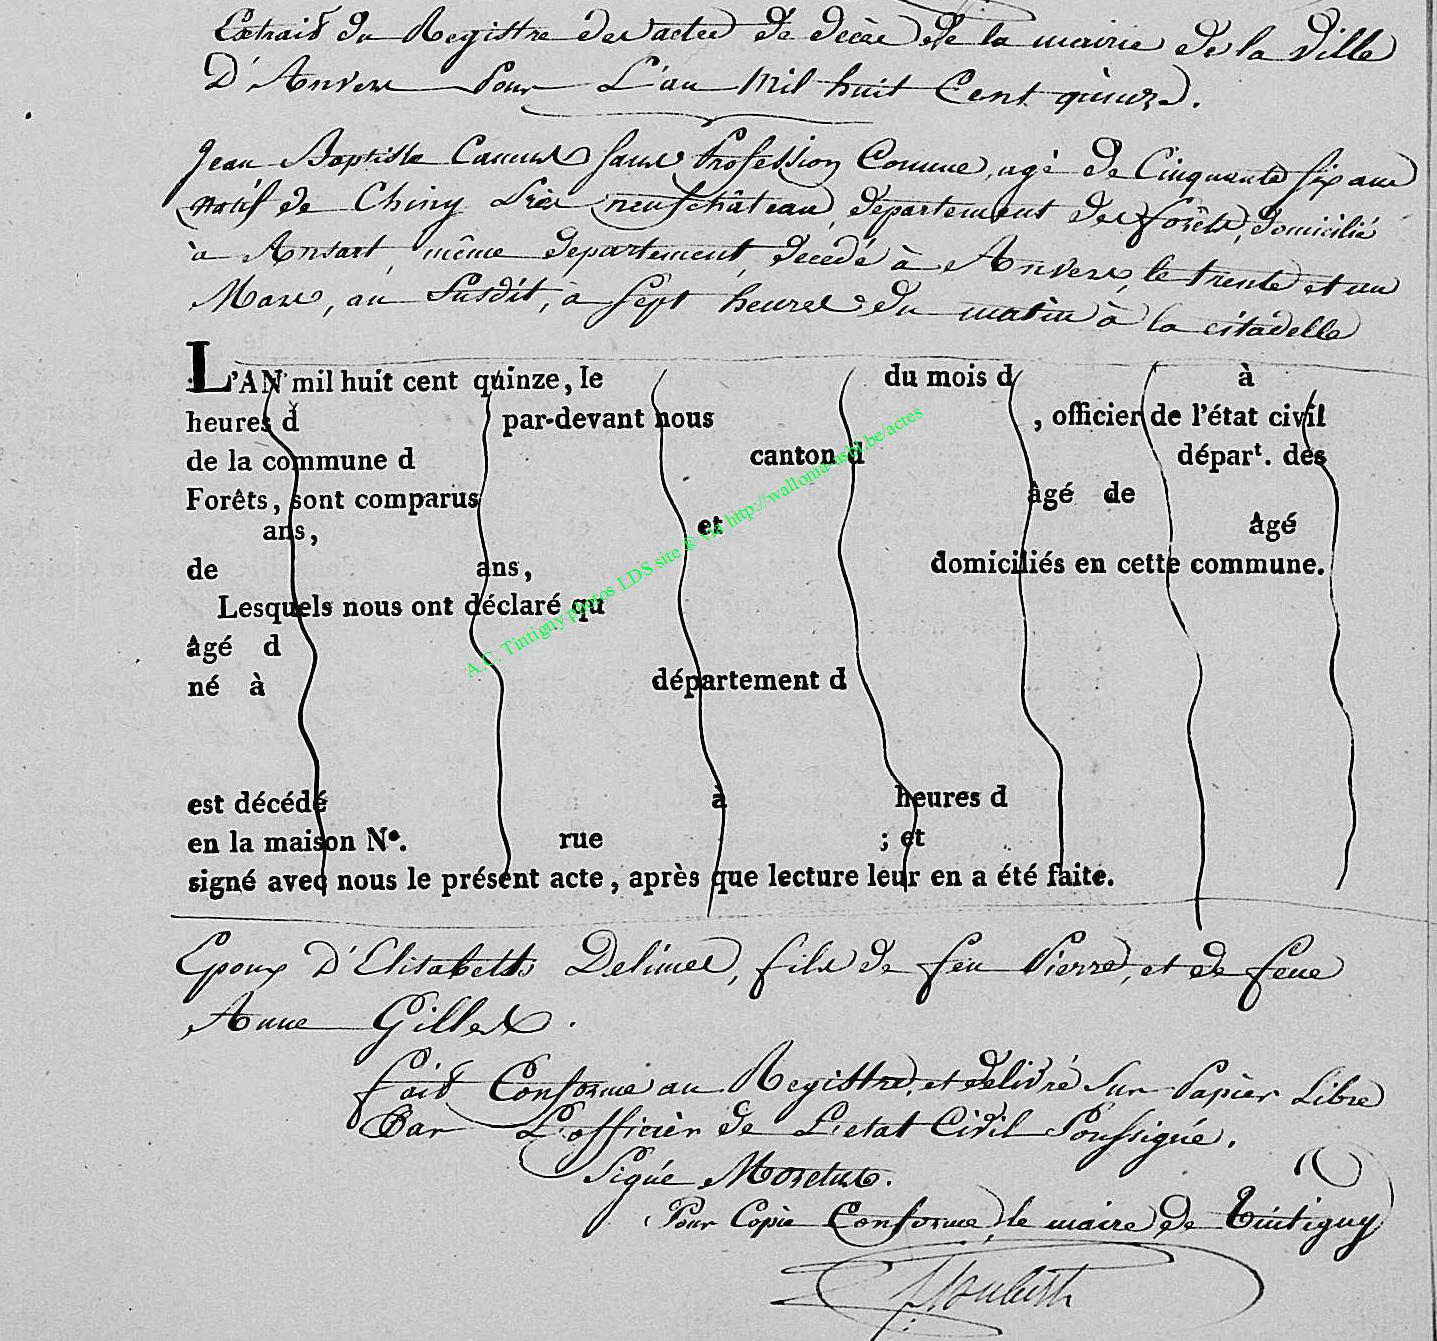 Extrait du Registre des actes de décès de la mairie de la ville
D'Anvers Pour L'an Mil huit Cent quinze.
Jean Baptiste sans Profession Connue, agé de Cinquante six ans
natif de Chiny Près neufchâteau, département des forêts, domicilié
à Ansart, même département, décédé à Anvers, le trente et un
Mars, an Susdit, à sept heures du matin à la citadelle
L'AN mil huit cent quinze, le du mois d à
heures d par-devant nous , officier de l'état civil
de la commune d canton d départ. des
Forêts, sont comparus âgé de
ans, et âgé
de ans, domiciliés en cette commune.
Lesquels nous ont déclaré qu
âgé d
né à département d
est décédé à heures d
en la maison Nº. rue ; et
signé avec nous le présent acte, après que lecture leur en a été faite.
A.C. Tintigny photos LDS site & via http://wallonia-asbl.be/actes
Epoux D'Elisabeth Delimel, fils de feu Pierre, et de feue
Anne Gillet.
fait Conforme au Registre, et délivré sur Papier Libre
Par L'officier de L'etat Civil Soussigné.
Signé Moretus.
Pour Copie Conforme, le maire de Tintigny